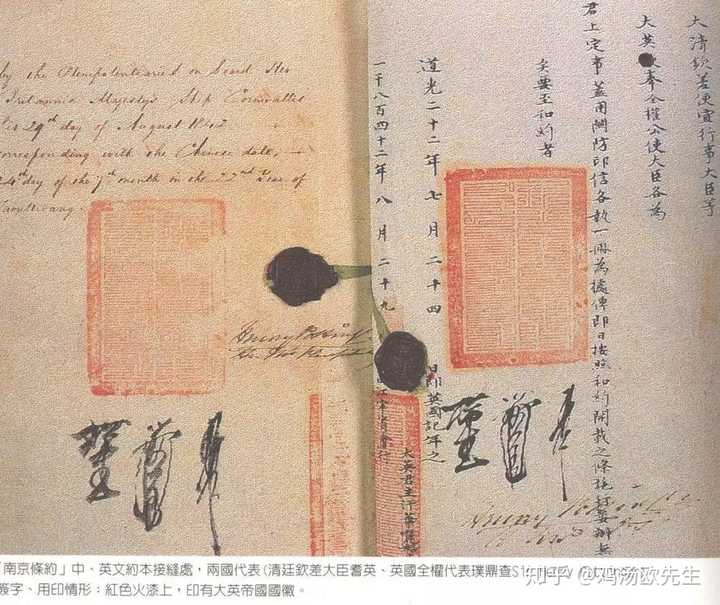 by the Plenipotentiaries on board Her
Britannic Majesty's Ship Cornwallis
29th day of August 1842
corresponding with the Chinese date,
24th day of the 7th month in the 22nd Year of
Taoukwang.
大清欽差便宜行事大臣等
大英 奉全權公使大臣各為
君上定事蓋用關防印信各執一冊為據俾即日按照和約開載之條施行妥辦無
矣要至和約者
道光二十二年七月二十四日即英國記年之
一千八百四十二年八月二十九日
大英君主
「南京條約」中、英文約本接縫處,兩國代表(清廷欽差大臣耆英、英國全權代表璞鼎查Sir
簽字、用印情形;紅色火漆上,印有大英帝國國徽。
知乎 @鸡汤欧先生